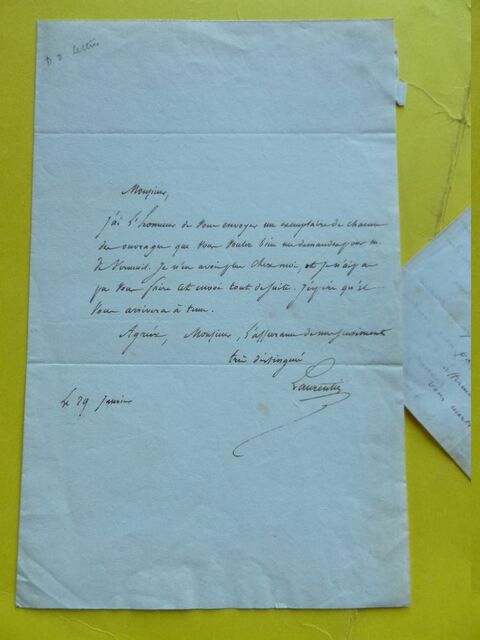 Monsieur,
J'ai l'honneur de vous envoyer un exemplaire de chacun
des ouvrages que vous voulez bien me demander pour M.
de Verneuil. Je n'en avais plus chez moi et je n'ai pas
pu vous faire cet envoi tout de suite. J'espère qu'il
vous arrivera à tems.
Agréez, Monsieur, l'assurance de mes sentimens
très distingués
Laurentie
Le 29 Janvier